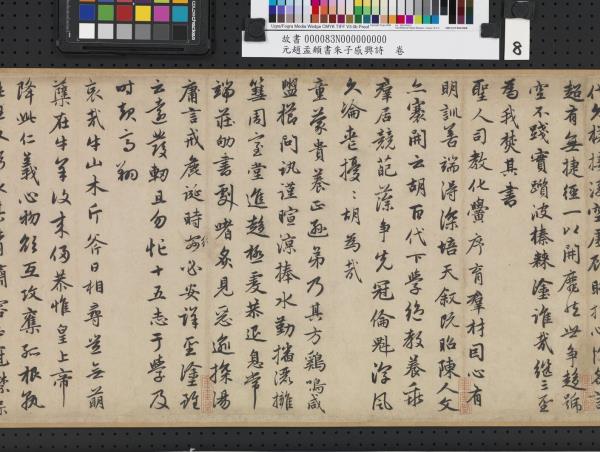 故書 000083N000000000
元趙孟頫書朱子感興詩 卷
8
代久梯接凌空虛顧瞻指心性名言
超有無捷徑一以開靡然世爭趨號
空不踐實躓彼榛棘塗誰哉繼三聖
為我焚其書
聖人司教化黌序育羣材因心有
明訓善端得深培天敘既昭陳人文
亦褰開云胡百代下學絕教養乖
羣居競葩藻爭先冠倫魁淳風
久淪喪擾〻胡為哉
童蒙貴養正遜弟乃其方雞鳴咸
盥櫛問訊謹暄涼捧水勤播灑擁
篲周室堂進趨極虔恭退息常
端莊劬書劇嗜炙見惡逾探湯
庸言戒麤誕時行必安詳聖塗雖
云遠發軔且勿忙十五志于學及
時起高翔
哀哉牛山木斤斧日相尋豈無萌
蘗在牛羊復來侵恭惟皇上帝
降此仁義心物欲互攻奪孤根孰